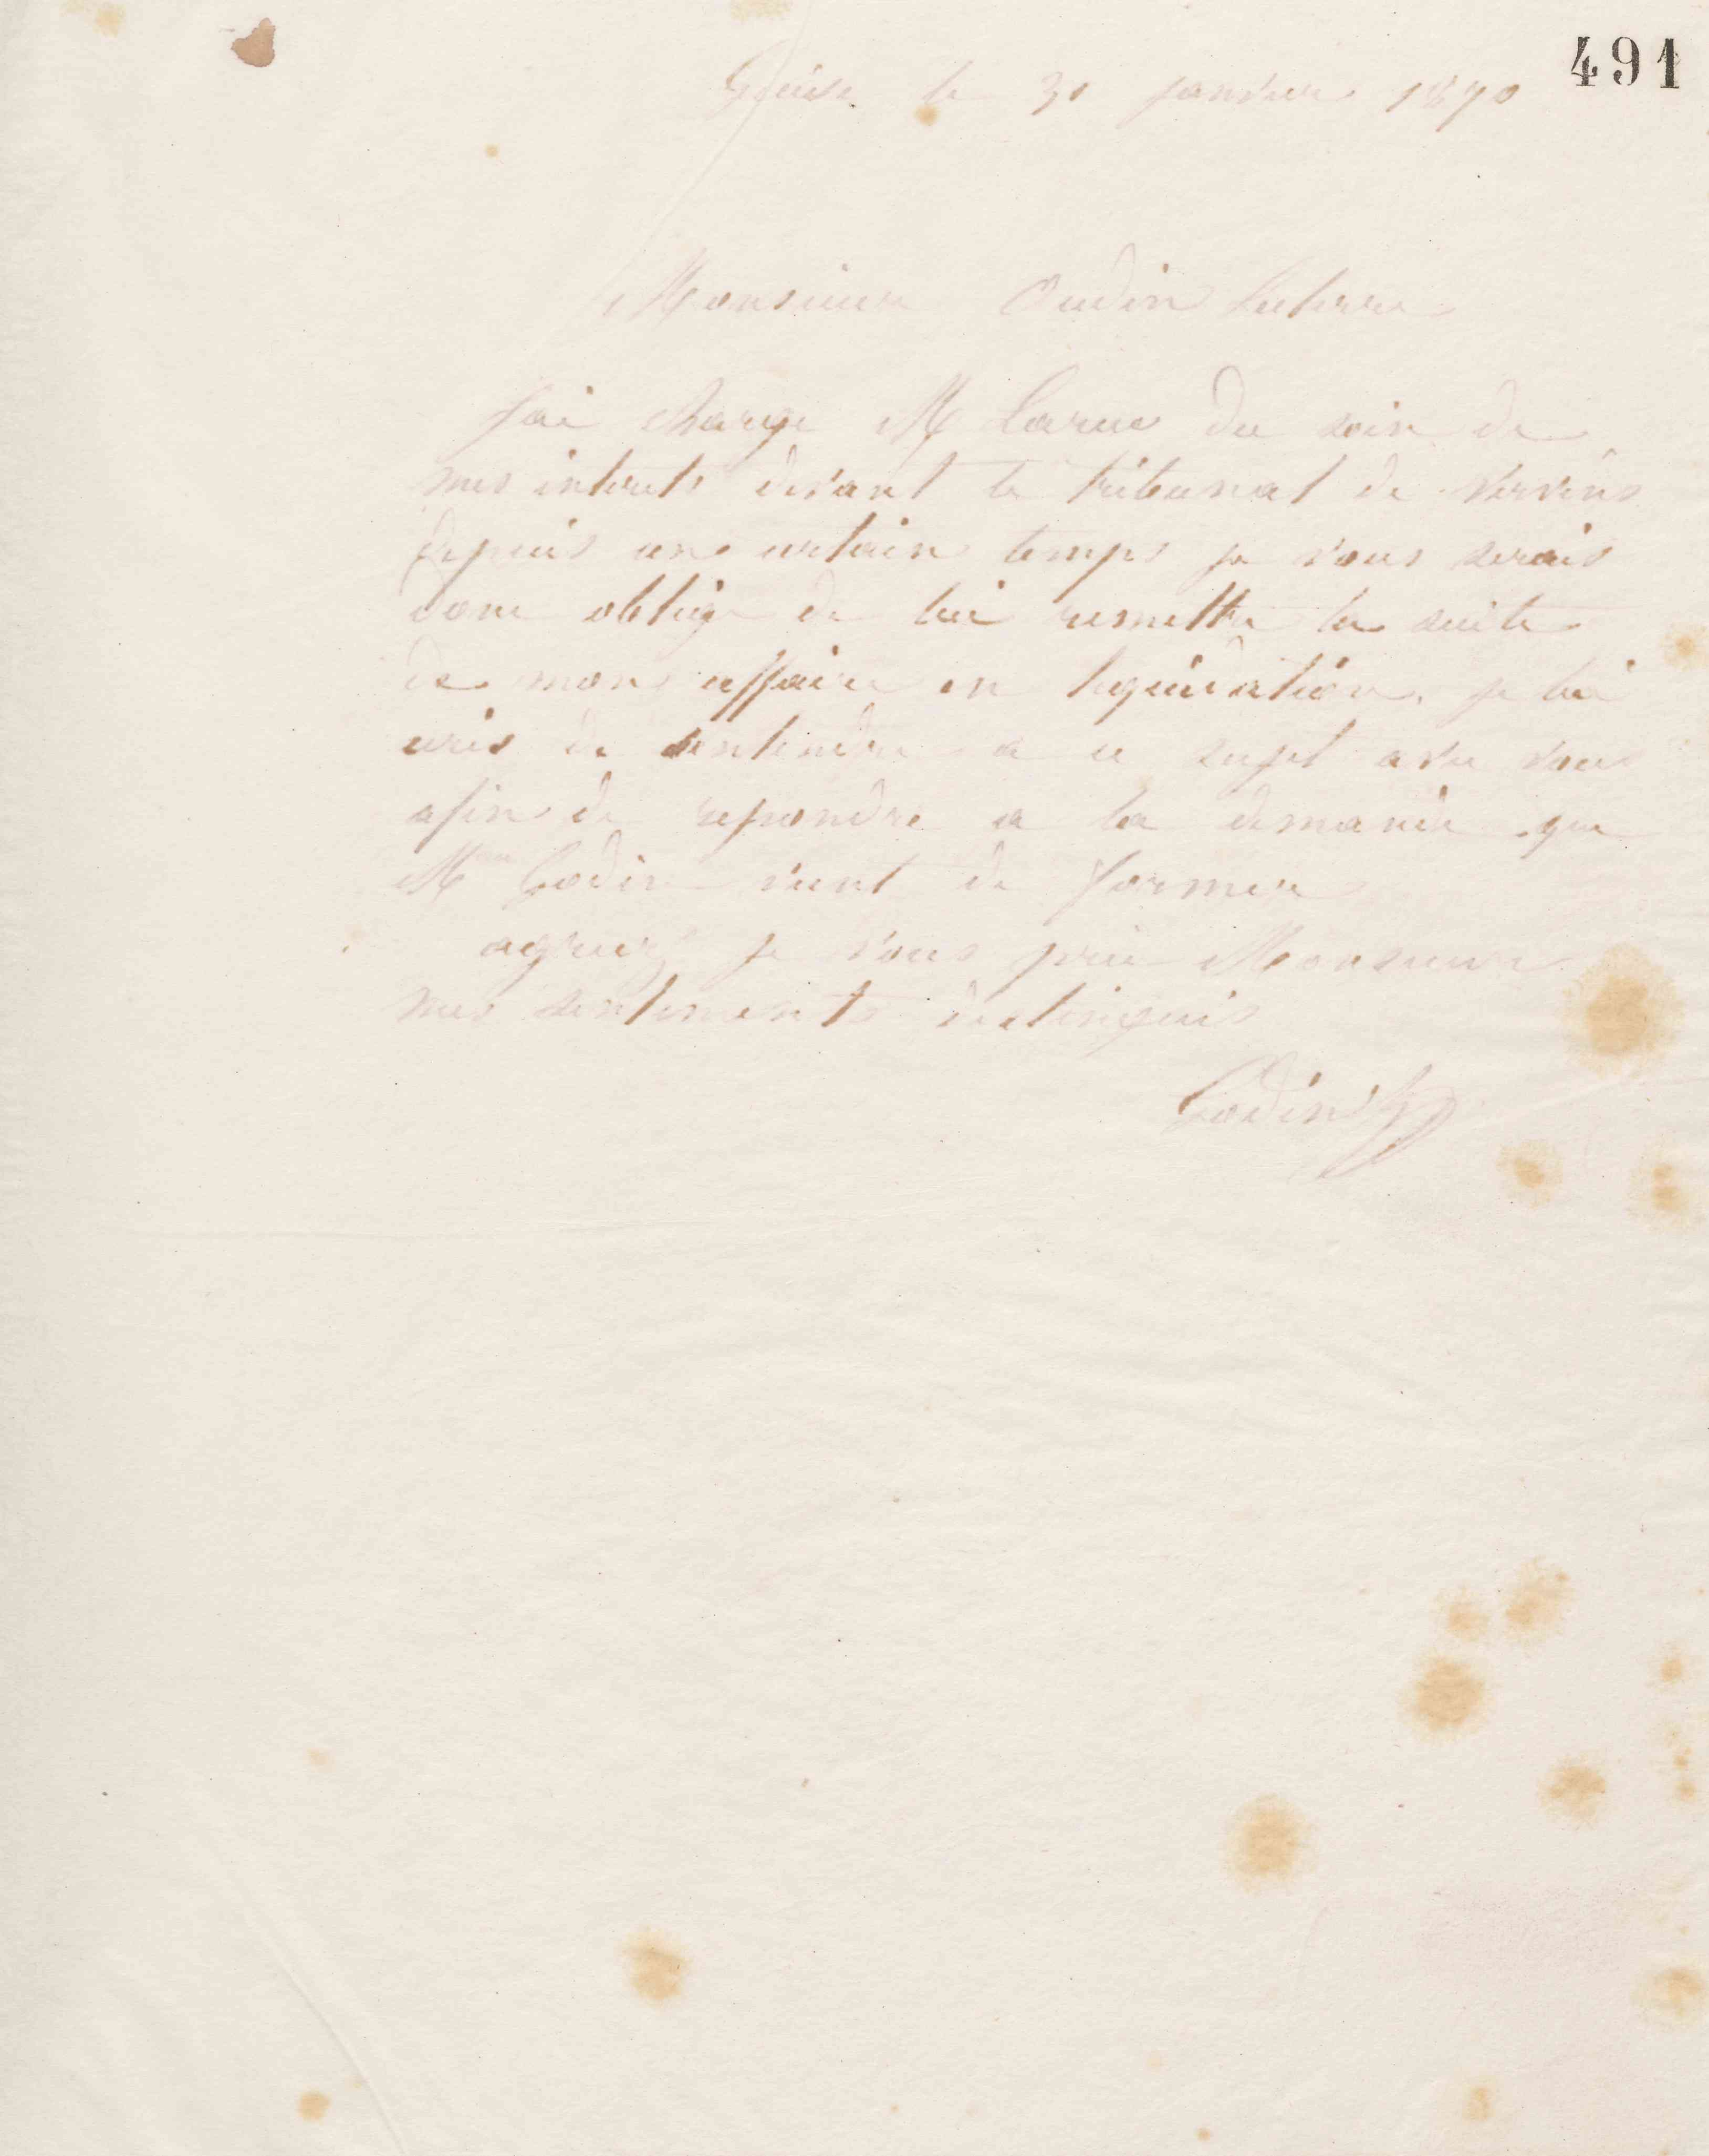 491
Guise le 30 janvier 1870
Monsieur Oudin
J'ai charge M Larue du soin de
mes interets devant le tribunal de Vervins
depuis un certain temps je vous serais
donc oblige de lui remettre la suite
de mon affaire en liquidation. je lui
ecris de s'entendre a ce sujet avec vous
afin de repondre a la demande que
Mme Godin vient de former
agreez je vous prie Monsieur
mes sentiments distingues
Godin